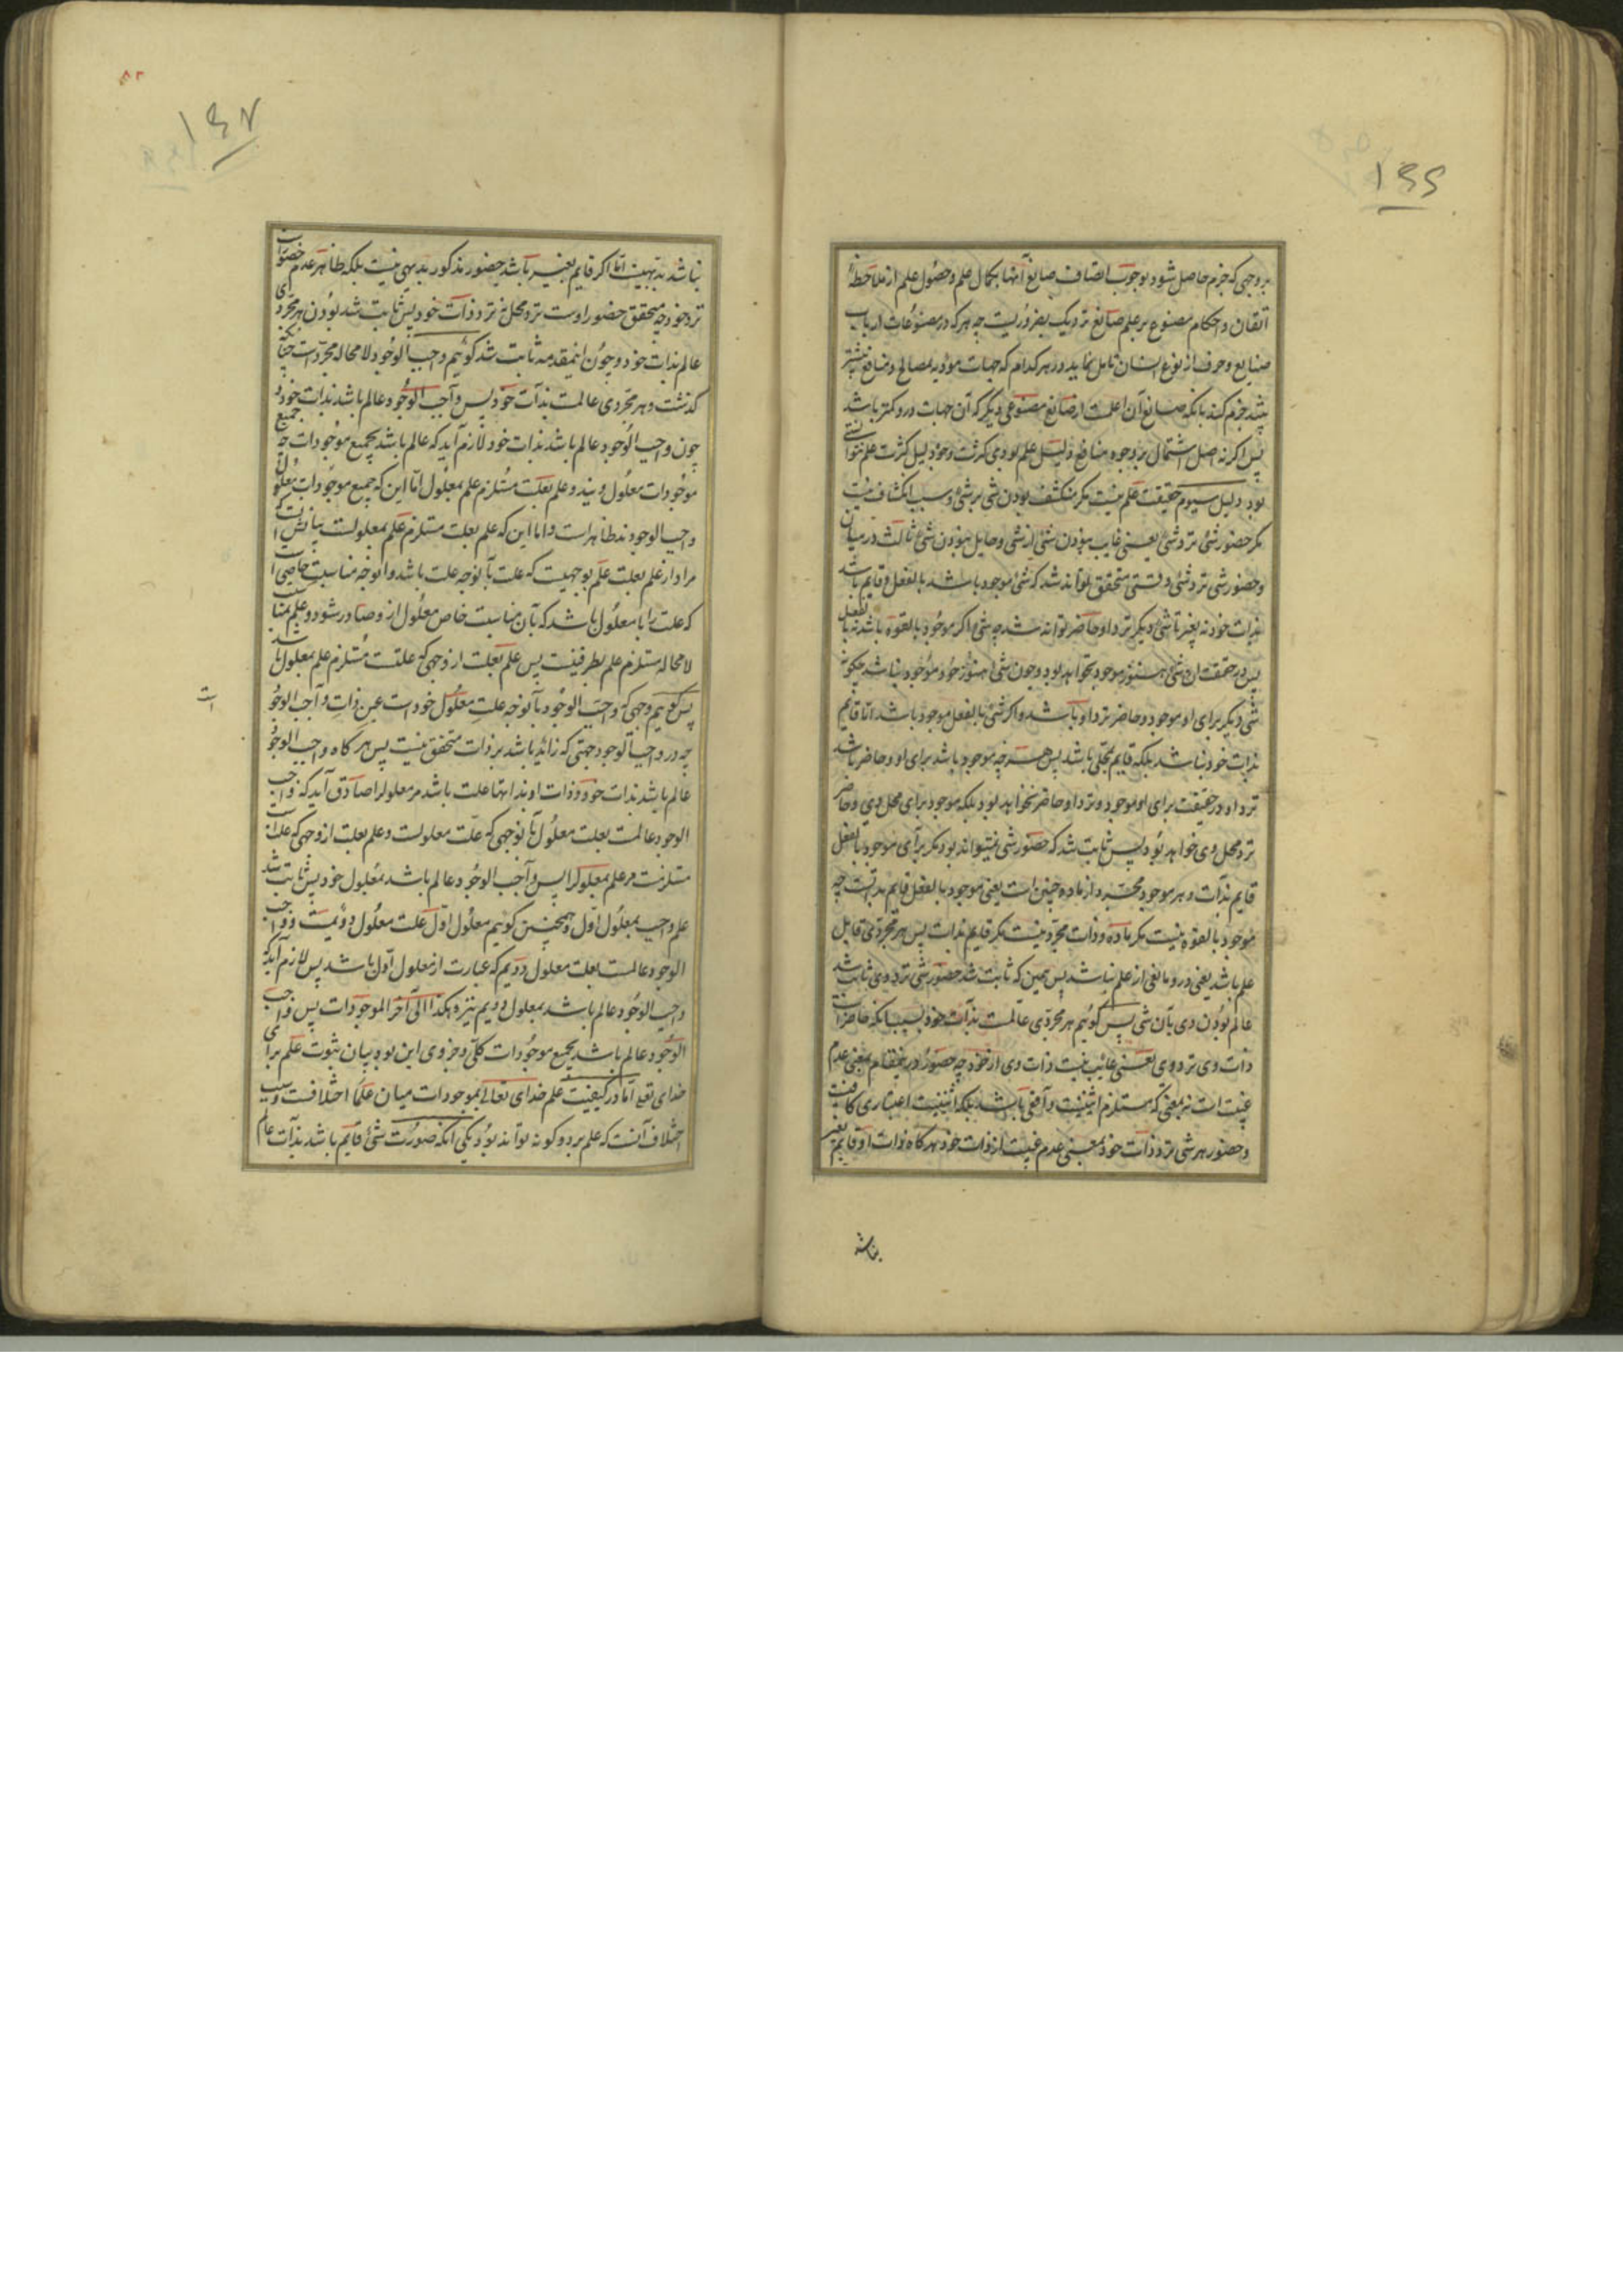 ۱۶۶
بر وجهی که جزم حاصل شود بوجوب اتصاف صانع آنها بکمال علم و حصول علم از ملاحظهٔ
اتقان و احکام مصنوع بر علم صانع نزدیک بضروریست چه هر که در مصنوعات ارباب
صنایع و حرف از نوع انسان تامل نماید و در هر کدام که جهات مؤدیه بمصالح و منافع بیشتر
بیند جزم کند بانکه صانع آن اعلمست از صانع مصنوعی دیگر که آن جهات درو کمتر باشد
پس اگر نه اصل اشتمال بر وجوه منافع دلیل علم بودی کثرت وجوه دلیل کثرت علم نتوانستی
بود دلیل سیوم حقیقت علم نیست مگر منکشف بودن شی بر شی و سبب انکشاف نیست
مگر حضور شی نزد شی یعنی غایب نبودن شی از شی و حایل نبودن شی ثالث در میان
و حضور شی نزد شی وقتی متحقق تواند شد که شی موجود باشد بالفعل و قایم باشد
بذات خود نه بغیر تا شی دیگر نزد او حاضر تواند شد چه شی اگر موجود بالقوه باشد نه بالفعل
پس در حقیقت آن شی هنوز موجود نخواهد بود و چون شی هنوز خود موجود نباشد چگونه
شی دیگر برای او موجود و حاضر نزد او باشد و اگر شی بالفعل موجود باشد اما قایم
بذات خود نباشد بلکه قایم بمحلی باشد پس هر چه موجود باشد برای او و حاضر باشد
نزد او در حقیقت برای او موجود و نزد او حاضر نخواهد بود بلکه موجود برای محل وی و حاضر
نزد محل وی خواهد بود پس ثابت شد که حضور شی نمیتواند بود مگر برای موجود بالفعل
قایم بذات و هر موجود مجرد از ماده چنین است یعنی موجود بالفعل قایم بذاتست چه
موجود بالقوه نیست مگر ماده و ذات مجرد نیست مگر قایم بذات پس هر مجردی قابل
علم باشد یعنی در و مانعی از علم نباشد پس همین که ثابت شد حضور شی نزد وی ثابت شد
عالم بودن وی بآن شی پس گوئیم هر مجردی عالمست بذات خود بسبب آنکه حاضر است
ذات وی نزد وی یعنی غایب نیست ذات وی از خود چه حضور درینمقام بمعنی عدم
غیبت است نه بمعنی که مستلزم اثنینیت واقعی باشد بلکه اثنینیت اعتباری کافیست
و حضور هر شی نزد ذات خود بمعنی عدم غیبت از ذات خود هر گاه ذات او قایم بغیر
نباشد
۸۳
۱۶۷
نباشد بدیهیست اما اگر قایم بغیر باشد حضور مذکور بدیهی نیست بلکه ظاهر عدم حضور است
نزد خود چه متحقق حضور اوست نزد محل نه نزد ذات خود پس ثابت شد بودن هر مجردی
عالم بذات خود و چون اینمقدمه ثابت شد گوئیم واجب الوجود لا محاله مجرد است چنانکه
گذشت و هر مجردی عالمست بذات خود پس واجب الوجود عالم باشد بذات خود و
چون واجب الوجود عالم باشد بذات خود لازم آید که عالم باشد بجمیع موجودات چه جمیع
موجودات معلول ویند و علم بعلت مستلزم علم بمعلول اما این که جمیع موجودات معلول
واجب الوجودند ظاهر است و اما این که علم بعلت مستلزم علم بمعلولست بیانش آنست که
مراد از علم بعلت علم بوجهیست که علت بآنوجه علت باشد و آنوجه مناسبت خاصی است
که علت را با معلول باشد که بآن مناسبت خاص معلول ازو صادر شود و علم بمناسبت
لا محاله مستلزم علم بطرفینست پس علم بعلت از وجهی که علتست مستلزم علم بمعلول باشد
پس گوییم وجهی که واجب الوجود بآنوجه علت معلول خود است عین ذات واجب الوجود
است
چه در واجب الوجود جهتی که زائد باشد بر ذات متحقق نیست پس هر گاه واجب الوجود
عالم باشد بذات خود و ذات او بذاتها علت باشد مر معلول را صادق آید که واجب
الوجود عالمست بعلت معلول بآنوجهی که علت معلولست و علم بعلت از وجهی که علت است
مستلزمست مر علم بمعلول را پس واجب الوجود عالم باشد بمعلول خود پس ثابت شد
علم واجب بمعلول اول و همچنین گوئیم معلول اول علت معلول دویمست و واجب
الوجود عالمست بعلت معلول دویم که عبارت از معلول اول باشد پس لازم آید که
واجب الوجود عالم باشد بمعلول دویم نیز و هکذا الی آخر الموجودات پس واجب
الوجود عالم باشد بجمیع موجودات کلی و جزوی این بود بیان ثبوت علم برای
خدای تعالی اما در کیفیت علم خدای تعالی بموجودات میان علما اختلافست و سبب
اختلاف آنست که علم بر دو گونه تواند بود یکی آنکه صورت شی قایم باشد بذات عالم